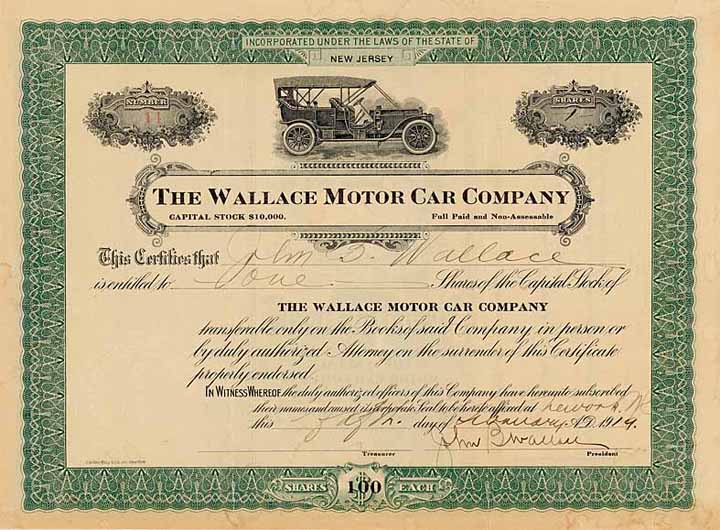 INCORPORATED UNDER THE LAWS OF THE STATE OF
NEW JERSEY
NUMBER
11
SHARES
1
THE WALLACE MOTOR CAR COMPANY
CAPITAL STOCK $10,000.
Full Paid and Non-Assessable
This Certifies that John S. Wallace
is entitled to one Shares of the Capital Stock of
THE WALLACE MOTOR CAR COMPANY
transferable only on the Books of said Company in person or
by duly authorized Attorney on the surrender of this Certificate
properly endorsed.
IN WITNESS WHEREOF the duly authorized officers of this Company have hereunto subscribed
their names and caused its corporate Seal to be hereto affixed at Newark, N.J.
this day of A.D. 1914.
John Wallace
Treasurer
President
SHARES 100 EACH